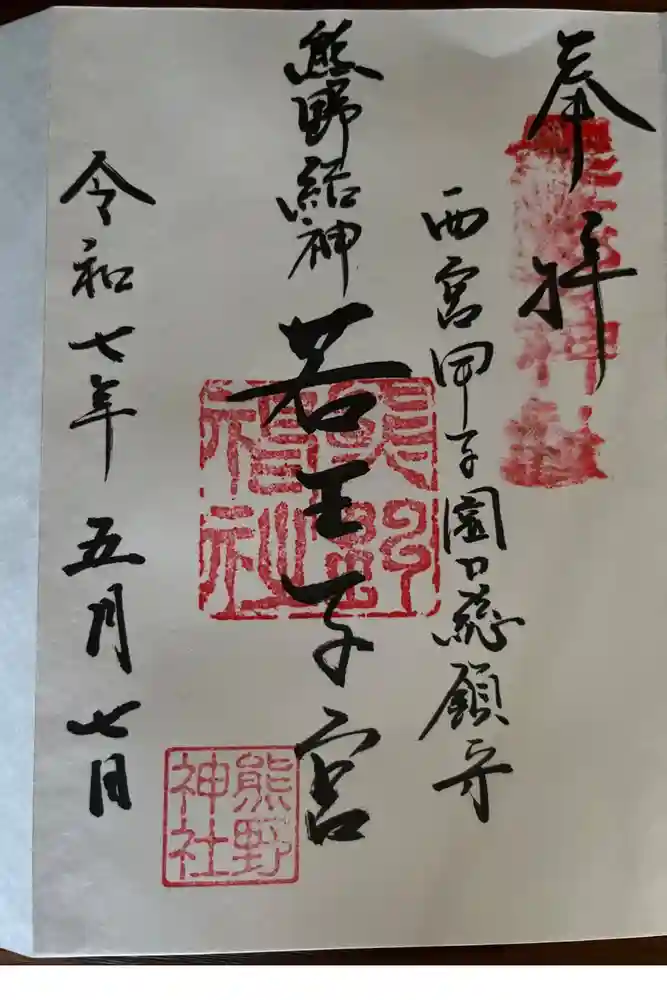 奉拝
西宮甲子園口慈願寺
熊野結神
若王子宮
令和七年五月七日
熊野
神社